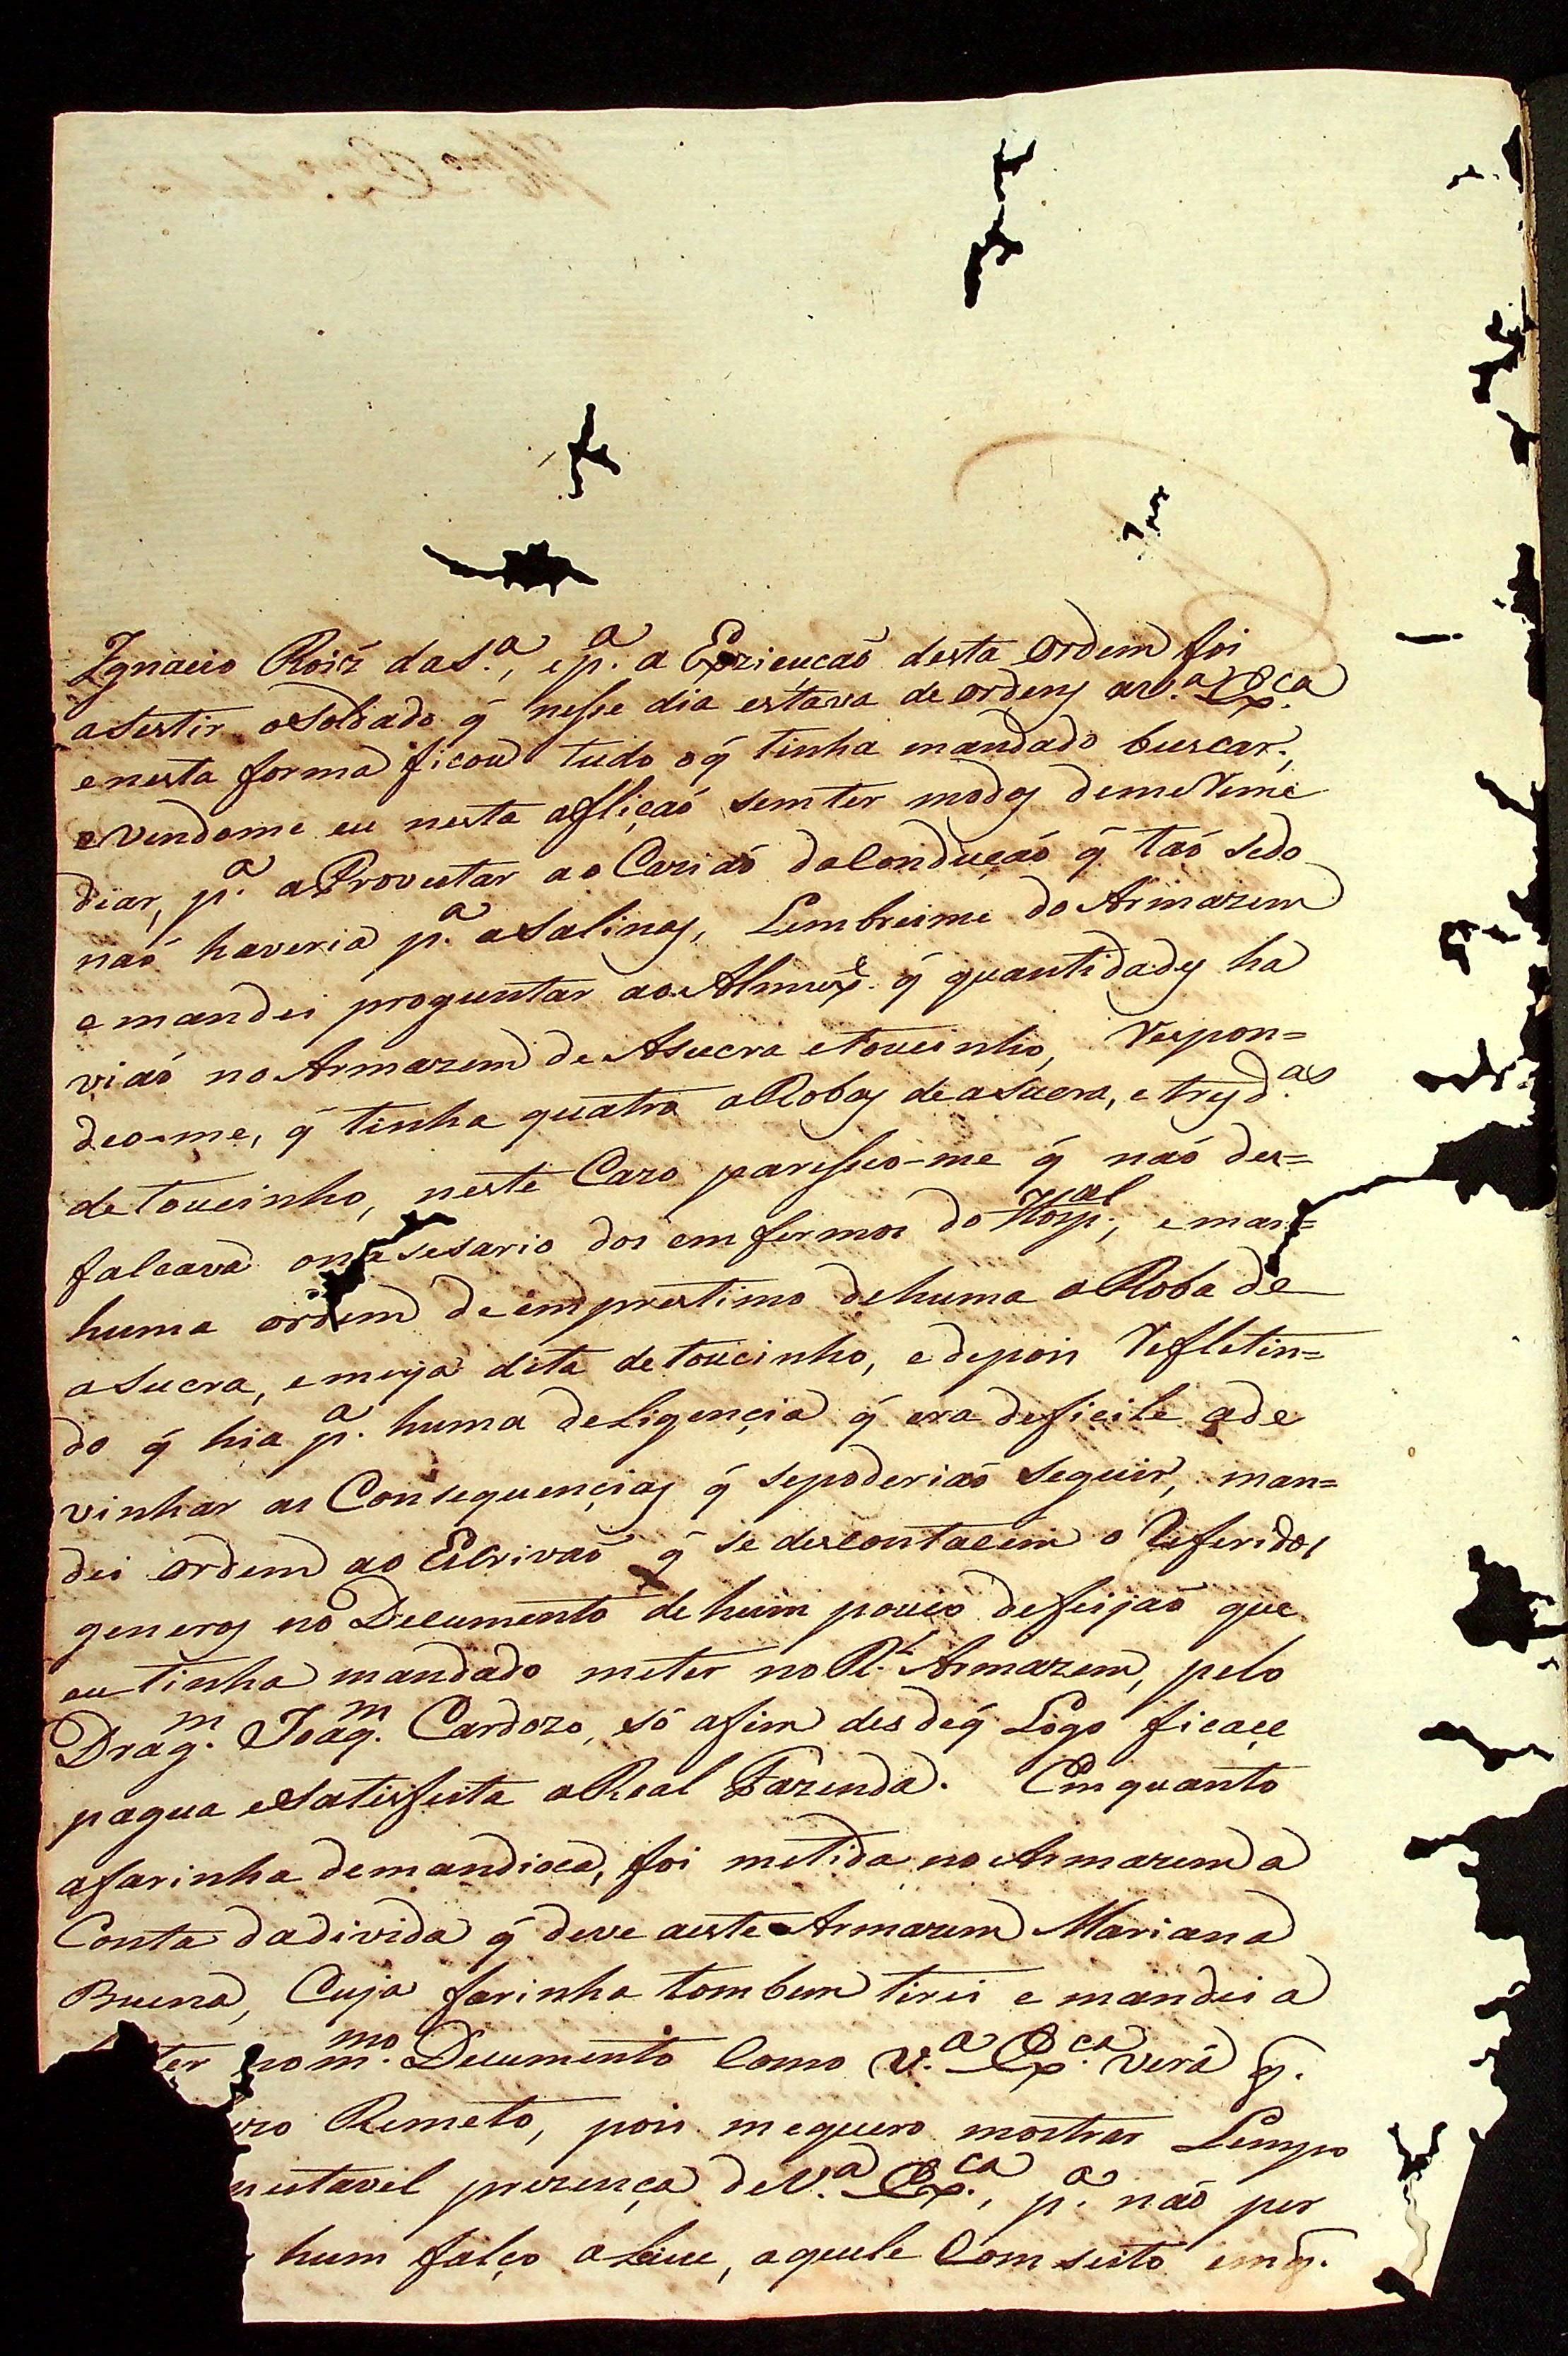 Ignacio Roiz da S.ª, e p.ª a Exzicuçaõ desta Ordem foi
asestir o Soldado q̃ nesse dia estava de ordens as V.ª Ex.ca
e nesta forma ficou tudo o q̃ tinha mandado buscar,
e vendome eu nesta afliçaõ sem ter modos de me Reme
diar, p.ª aProveitar ao Cariaõ da Conduçaõ q̃ taõ sedo
naõ haveria p.ª a Salinas, Lembreime do Armazem
e mandei proguntar ao Almox.e q̃ quantidades ha
viaõ no Armazem de Asucra e toucinho, Respon=
deo-me, q̃ tinha quatro aRobas de asucra, e tres d.as
de toucinho, neste Cazo paresseo-me q̃ naõ des=
falcava o nesesario dos emfermos do Hosp.al, e man=
huma ordem de emprestimo de huma aRoba de
asucra, e meya dita de toucinho, e depois Refletin=
do q̃ hia p.ª huma deLigençia q̃ era deficile ade
vinhar as Consequençias q̃ se poderiaõ seguir, man=
dei ordem ao Escrivaõ q̃ se descontacem o Referidos
generos no Decumento de hum pouco de feijaõ que
eu tinha mandado meter no R.l Armazem, pelo
Drag.m Joaq.m Cardozo, só afim des de q̃ Logo ficaçe
pagua e Satisfeita a Real Fazenda. Emquanto
a farinha de mandioca, foi metida no Armazem a
Conta da divida q̃ deve a este Armazem Mariana
Buena, Cuja farinha tombem tirei e mandei a
ter no m.mo Decumento Como V.ª Ex.ca verá q̃.
Remeto, pois me quero mostrar Limpo
prezença de V.ª Ex.ca, p.ª naõ per
hum falço aLeive, aquele Com seito em q̃.